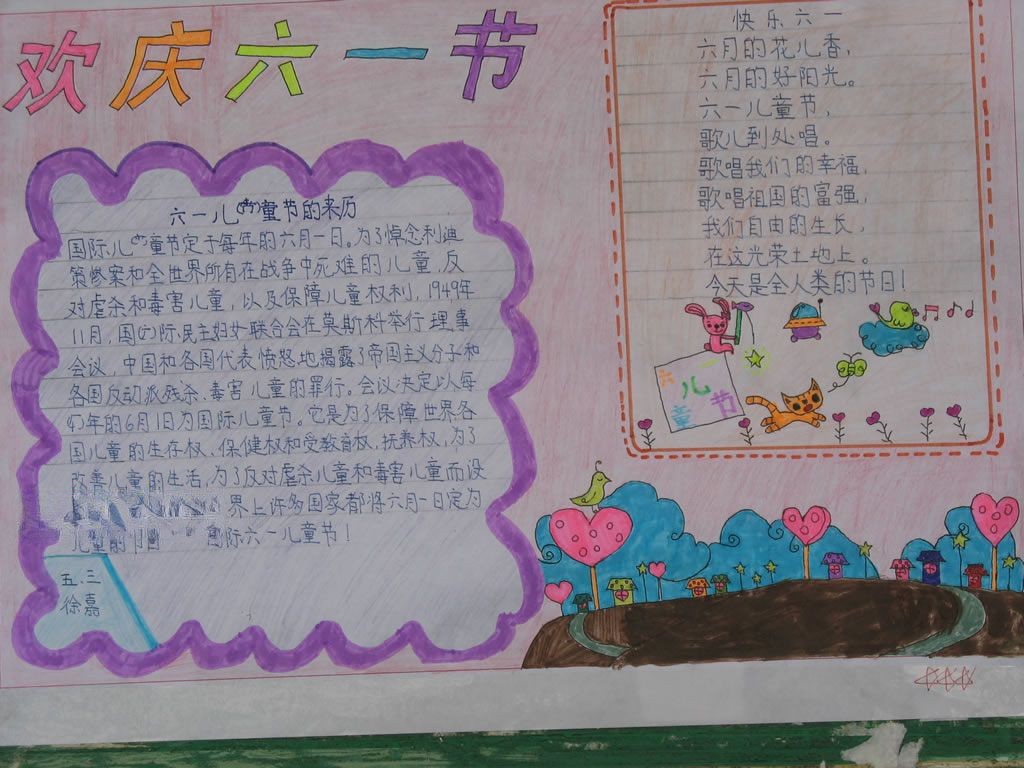 欢庆六一节
六一儿童节的来历
国际儿童节定于每年的六月一日。为了悼念利迪
策惨案和全世界所有在战争中死难的儿童,反
对虐杀和毒害儿童,以及保障儿童权利,1949年
11月,国际民主妇女联合会在莫斯科举行理事
会议,中国和各国代表愤怒地揭露了帝国主义分子和
各国反动派残杀、毒害儿童的罪行。会议决定以每
年的6月1日为国际儿童节。它是为了保障世界各
国儿童的生存权、保健权和受教育权,抚养权,为了
改善儿童的生活,为了反对虐杀儿童和毒害儿童而设
界上许多国家都将六月一日定为
儿童的节日 国际六一儿童节!
五.三
徐嘉
快乐六一
六月的花儿香,
六月的好阳光。
六一儿童节,
歌儿到处唱。
歌唱我们的幸福,
歌唱祖国的富强,
我们自由的生长,
在这光荣土地上。
今天是全人类的节日!
六一儿童节